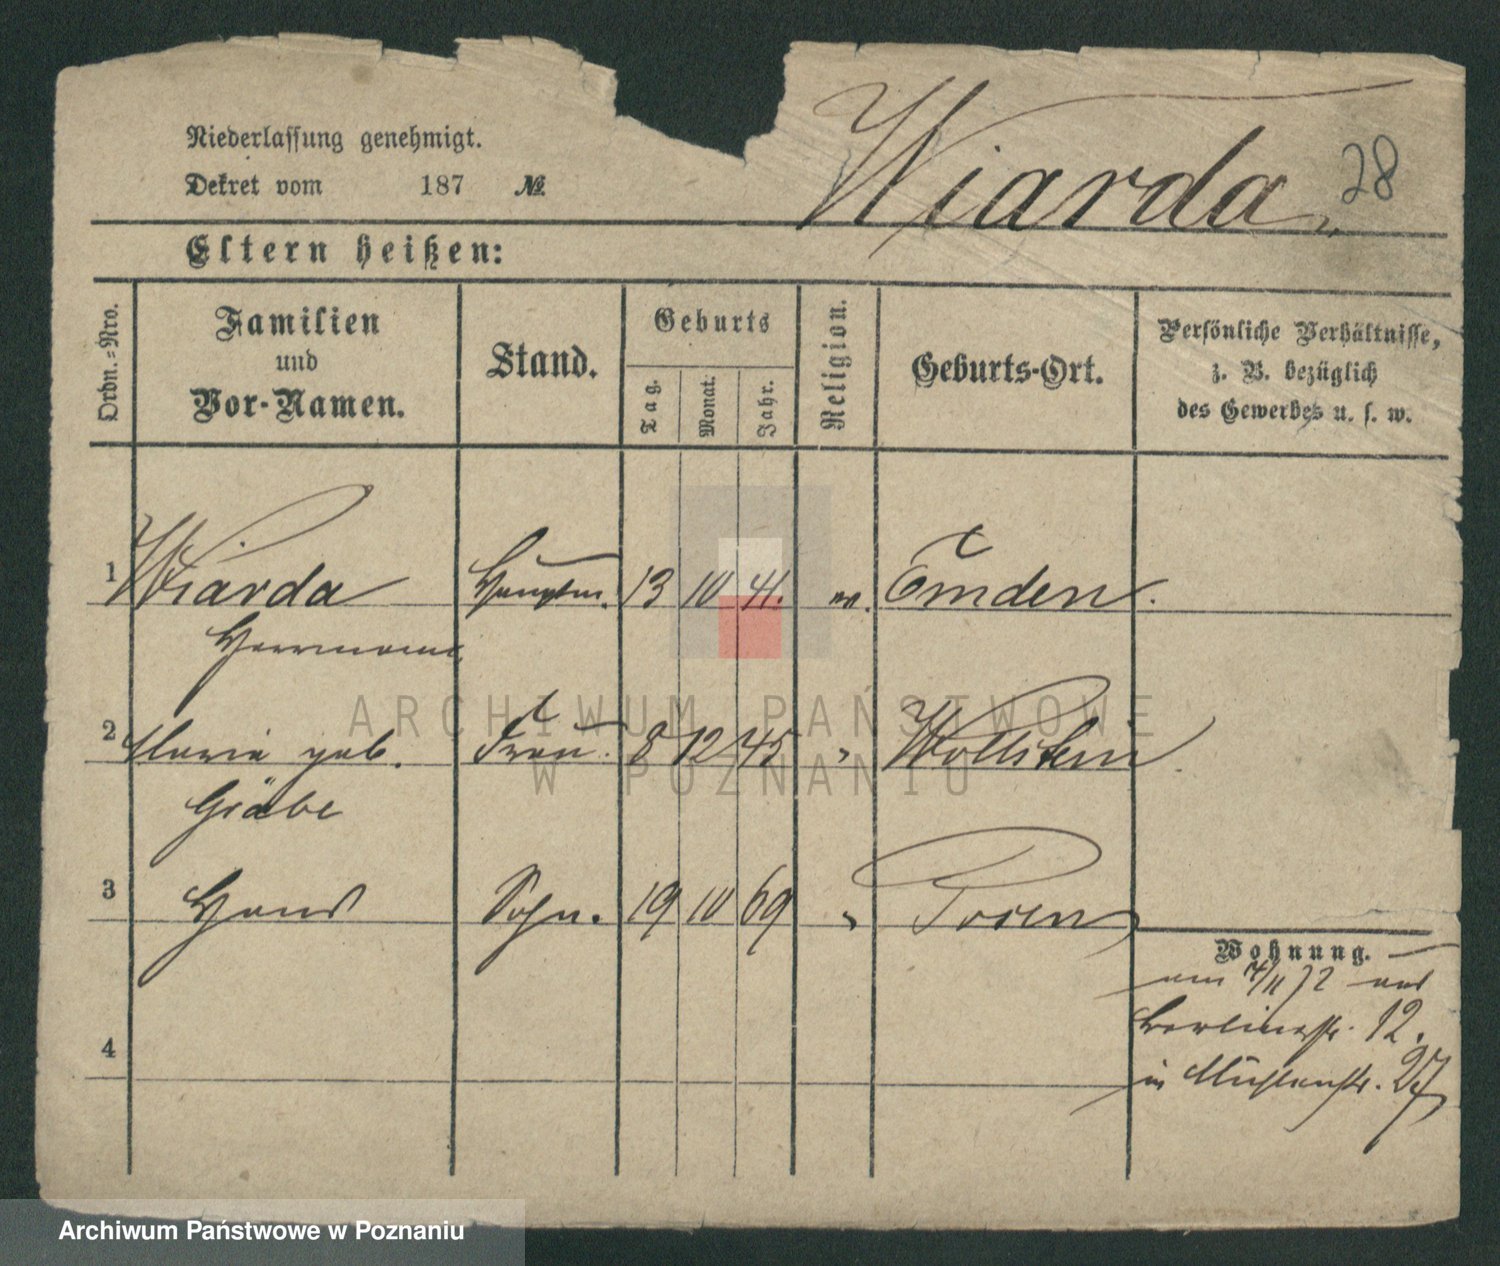 Wiarda
28
Niederlassung genehmigt.
Dekret vom 187 №
Eltern heißen:
Ordn.-Nro.
Familien
und
Vor-Namen.
Stand.
Geburts
Tag.
Monat.
Jahr.
Religion.
Geburts-Ort.
Persönliche Verhältnisse,
z. B. bezüglich
des Gewerbes u. s. w.
1 Wiarda Hauptm. 13 10 41. ev. Emden.
Herrmann
2 Maria geb. Frau. 8 12 45 " Wollstein
Gräbe
3 Hans Sohn. 19 10 69 " Posen
Wohnung.
am 4/11 72 aus
Berlinerstr. 12.
in Mühlenstr. 27
4
ARCHIWUM PAŃSTWOWE
W POZNANIU
Archiwum Państwowe w Poznaniu